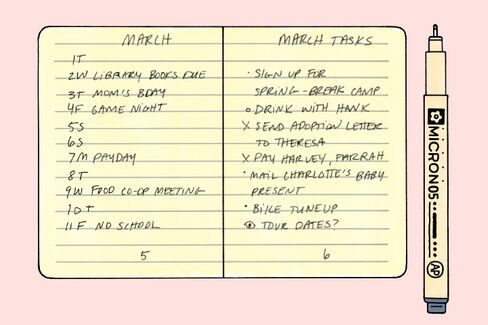 MARCH
1T
2W LIBRARY BOOKS DUE
3T MOM'S BDAY
4F GAME NIGHT
5S
6S
7M PAYDAY
8T
9W FOOD CO-OP MEETING
10T
11F NO SCHOOL
5
MARCH TASKS
· SIGN UP FOR
SPRING-BREAK CAMP
o DRINK WITH HANK
X SEND ADOPTION LETTER
TO THERESA
X PAY HARVEY, FARRAH
· MAIL CHARLOTTE'S BABY
PRESENT
· BIKE TUNEUP
TOUR DATES?
6
MICRON 05
AP